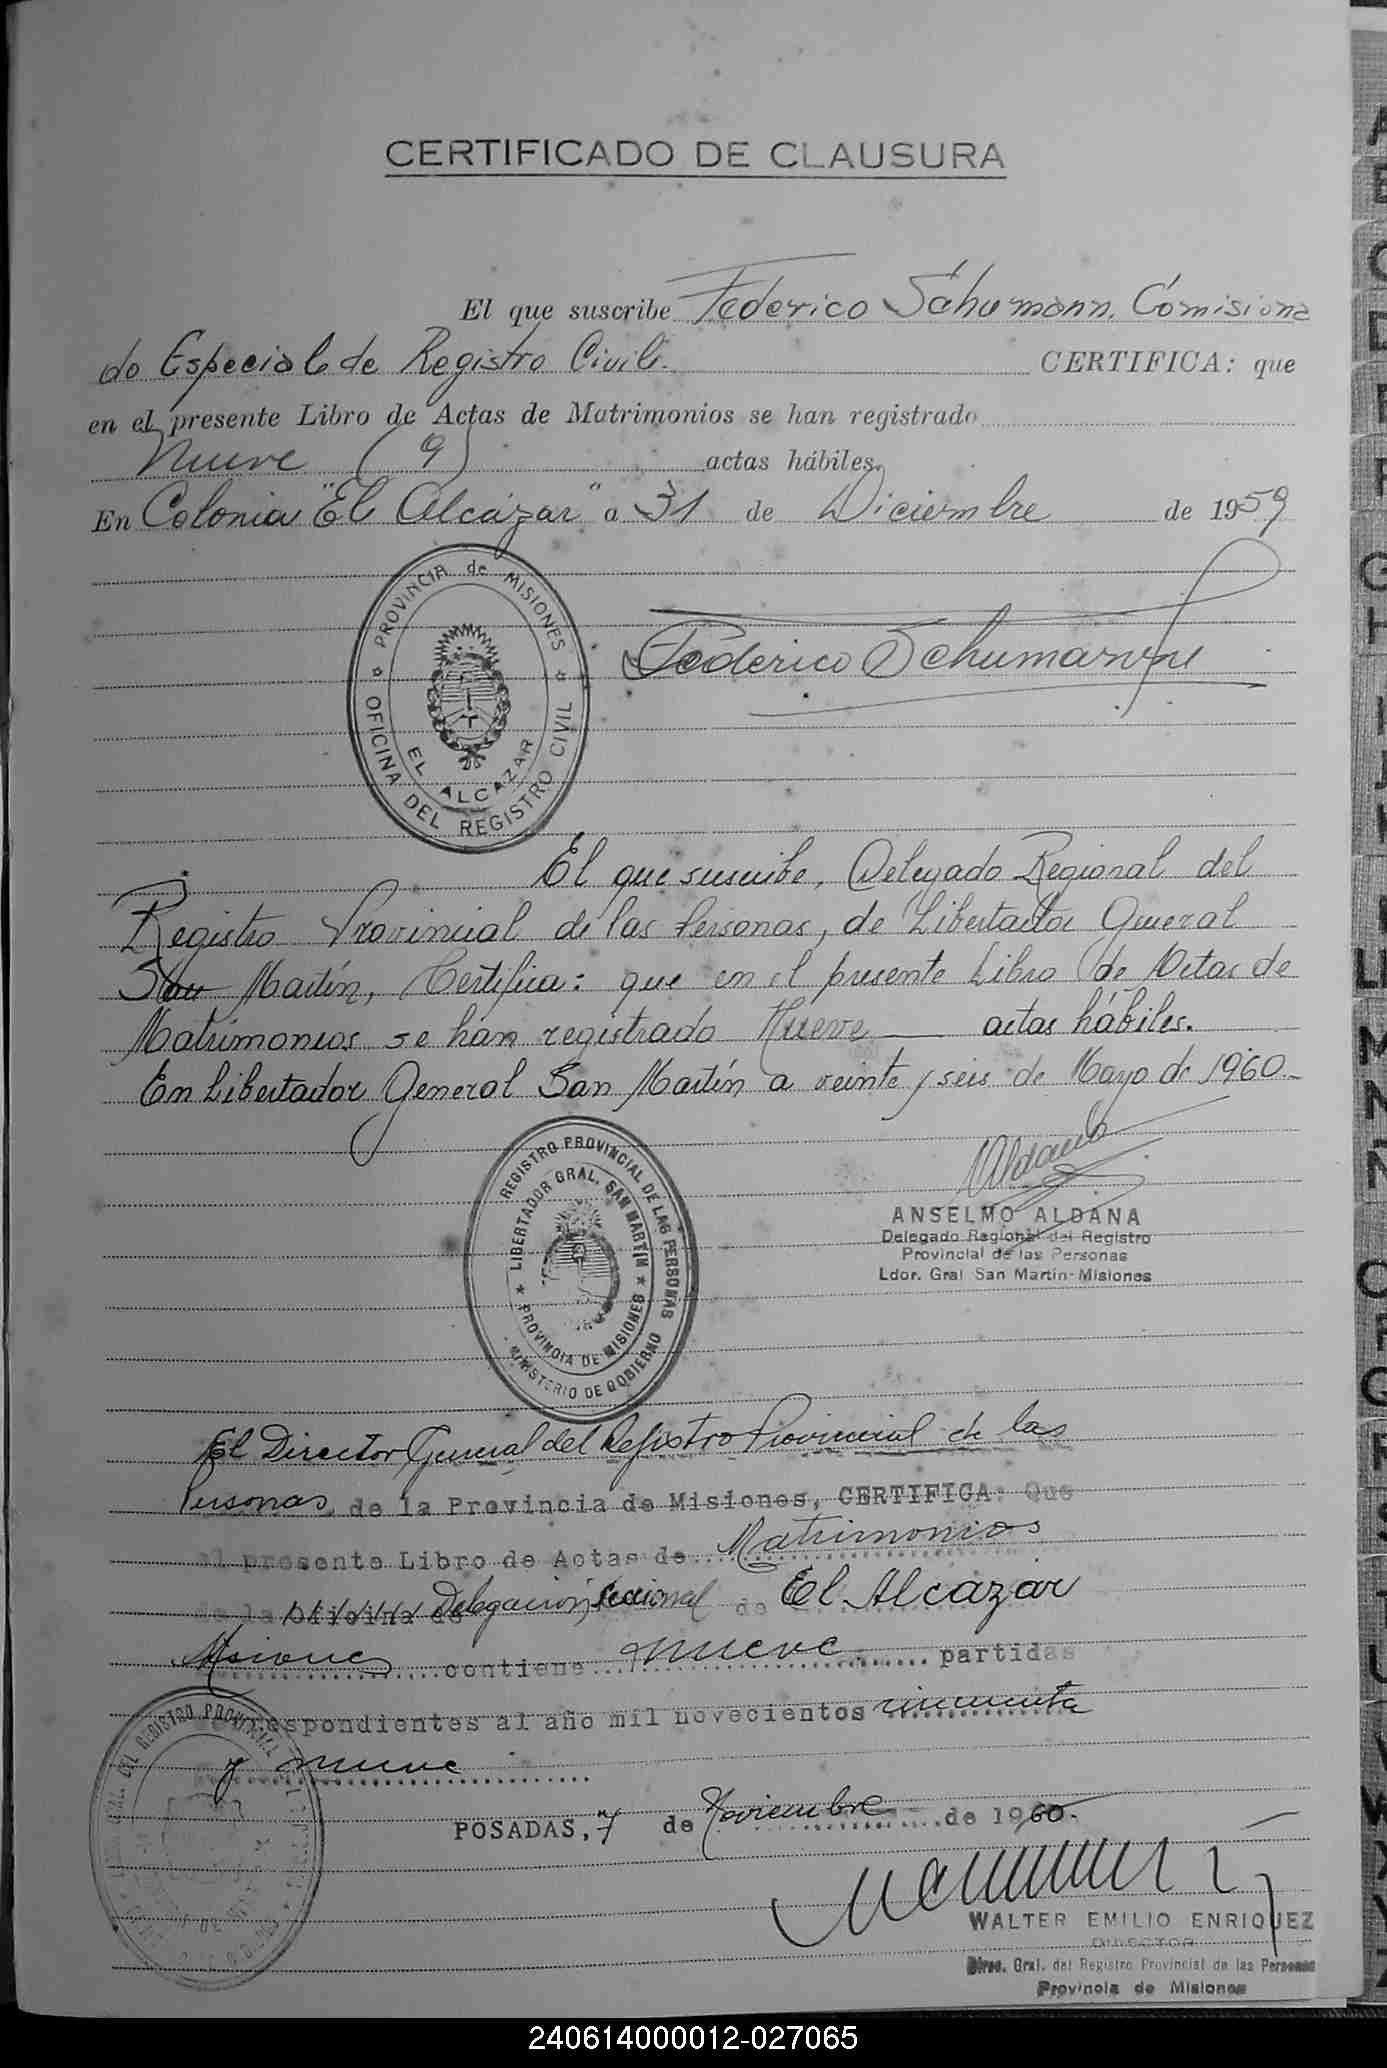 CERTIFICADO DE CLAUSURA
El que suscribe Federico Schumann, Comisiona
do Especial de Registro Civil. CERTIFICA: que
en el presente Libro de Actas de Matrimonios se han registrado
Nueve (9) actas hábiles.
En Colonia "El Alcázar" a 31 de Diciembre de 1959
PROVINCIA de MISIONES
OFICINA DEL REGISTRO CIVIL
EL ALCAZAR
Federico Schumann
El que suscribe, Delegado Regional del
Registro Provincial de las Personas, de Libertador General
San Martín, Certifica: que en el presente Libro de Actas de
Matrimonios se han registrado Nueve actas hábiles.
En Libertador General San Martín a veinte y seis de Mayo de 1960.
REGISTRO PROVINCIAL DE LAS PERSONAS
LIBERTADOR GRAL. SAN MARTIN
PROVINCIA DE MISIONES
MINISTERIO DE GOBIERNO
Aldana
ANSELMO ALDANA
Delegado Regional del Registro
Provincial de las Personas
Ldor. Gral San Martin-Misiones
El Director General del Registro Provincial de las
Personas, de la Provincia de Misiones, CERTIFICA: Que
el presente Libro de Actas de Matrimonios
de la Delegación Seccional de El Alcazar
Misiones contiene nueve partidas
correspondientes al año mil novecientos cincuenta
y nueve
POSADAS, 7 de Noviembre de 1960.
GRAL. DEL REGISTRO PROVINCIAL
WALTER EMILIO ENRIQUEZ
DIRECTOR
Direc. Gral. del Registro Provincial de las Personas
Provincia de Misiones
240614000012-027065